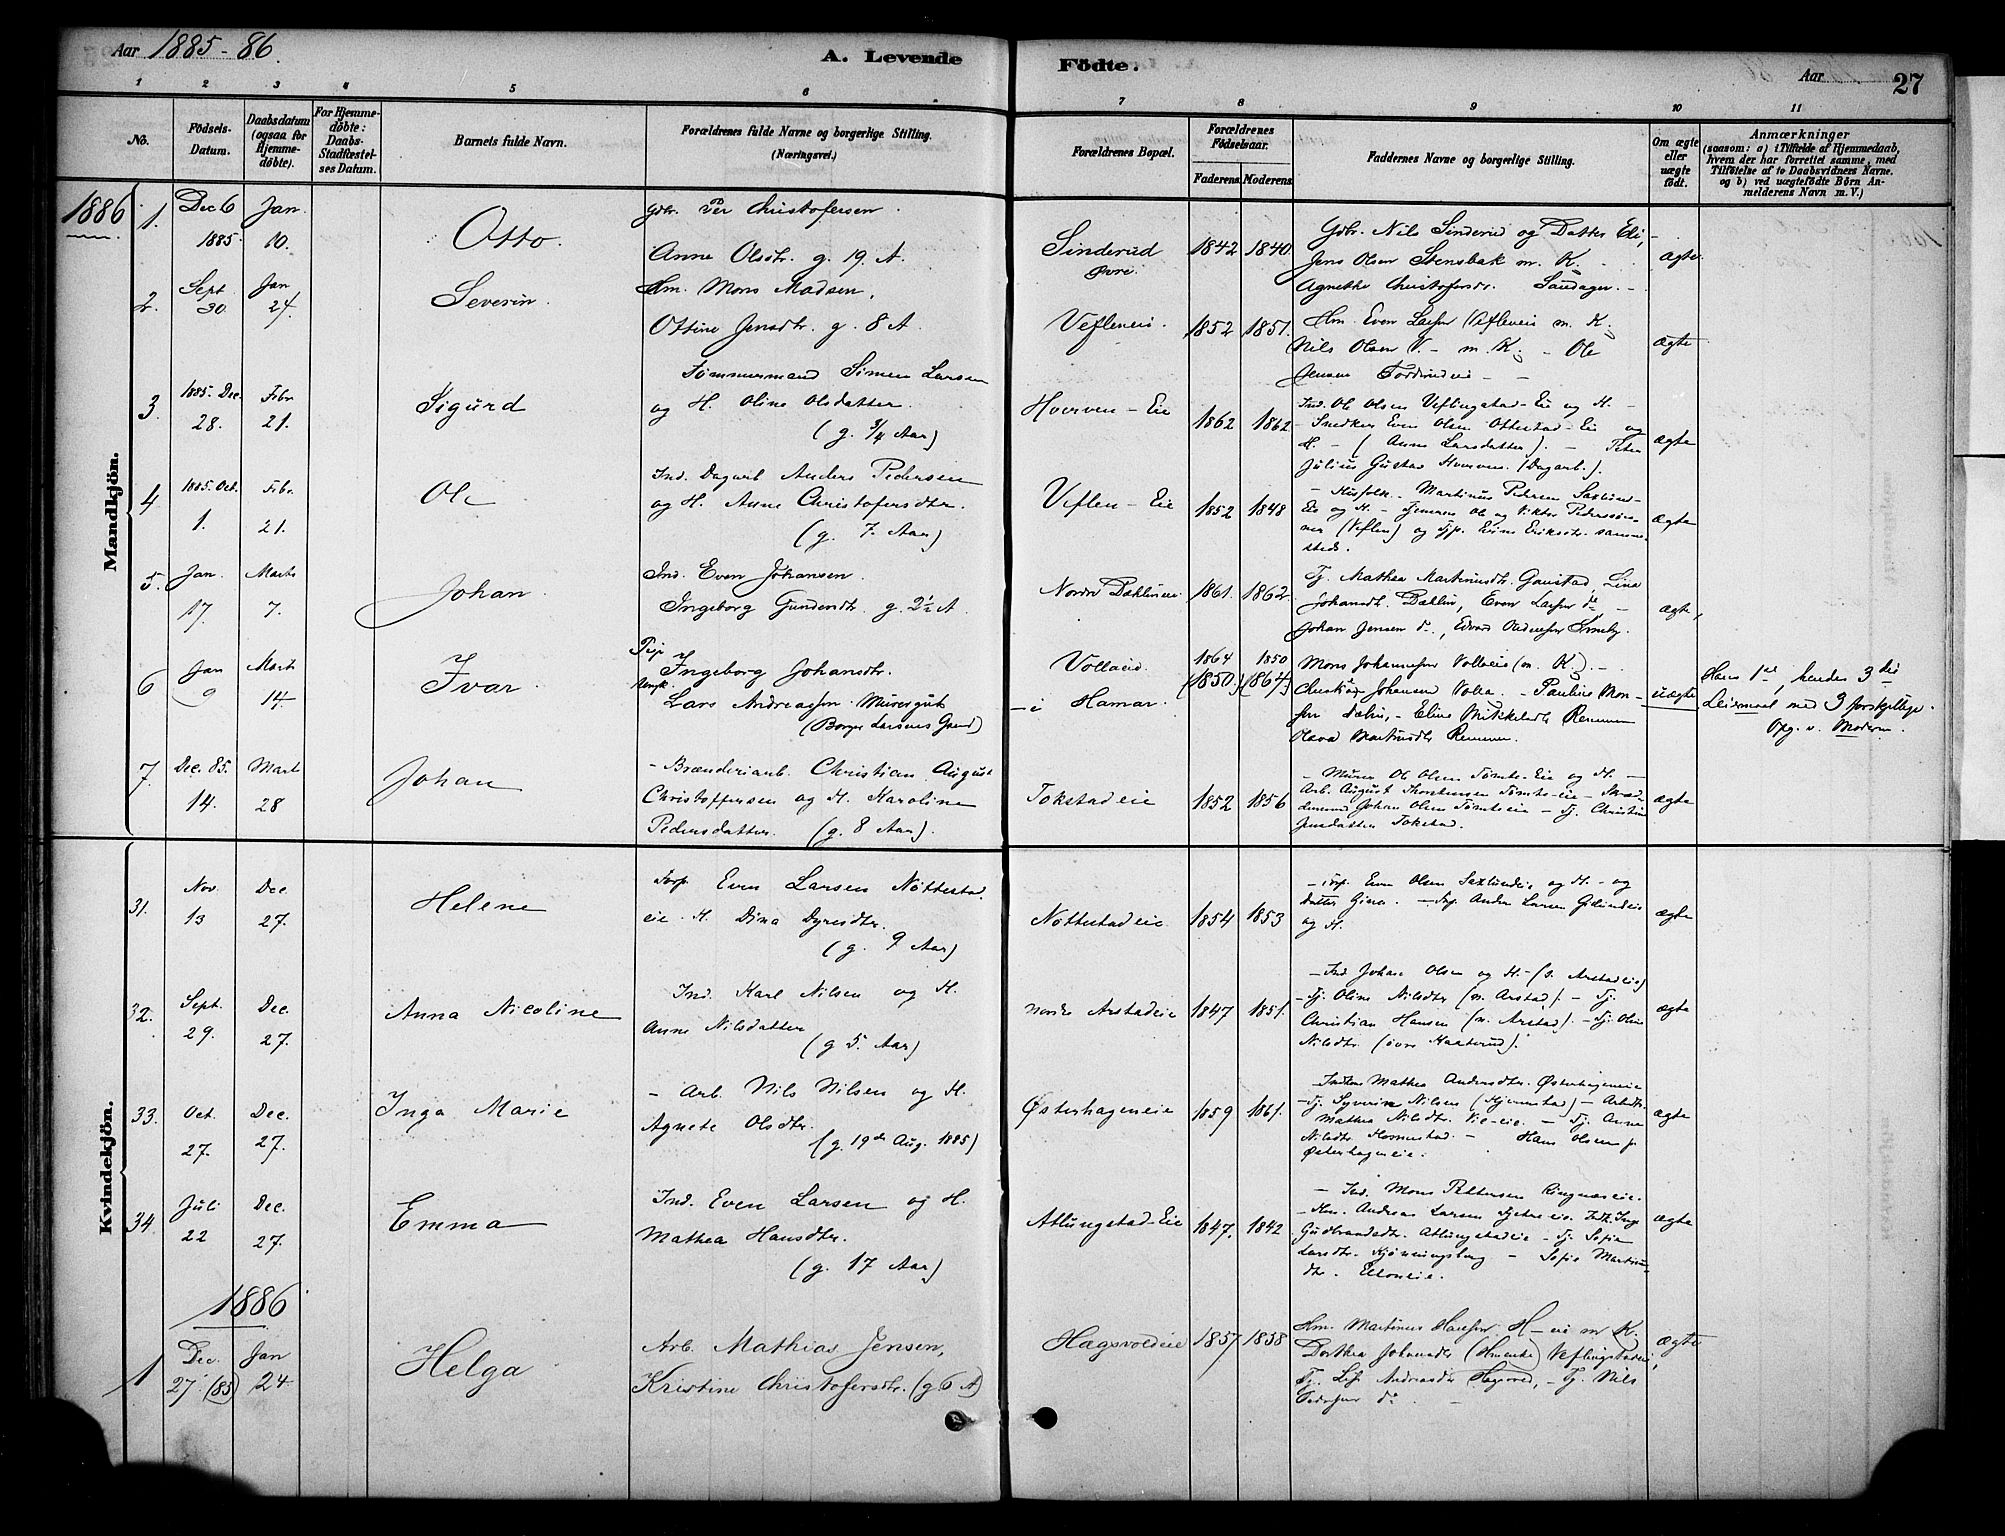 Aar 1885-86.
A. Levende Födte.
Aar 27
1 2 3 4 5 6 7 8 9 10 11
No.
Födsels-Datum.
Daabsdatum (ogsaa for Hjemmedöbte).
For Hjemmedöbte: Daabs-Stadfæstelses Datum.
Barnets fulde Navn.
Forældrenes fulde Navne og borgerlige Stilling. (Næringsvei.)
Forældrenes Bopæl.
Forældrenes Födselsaar.
Faderens. Moderens.
Faddernes Navne og borgerlige Stilling.
Om ægte eller uægte födt.
Anmærkninger
(saasom: a) i Tilfælde af Hjemmedaab, hvem der har forrettet samme, med Tilföielse af to Daabsvidners Navne. og b) ved uægtefödte Börn Anmelderens Navn m. V.)
Mandkjön.
1886
1. Dec 6 1885 Jan. 10. Otto. Gbr. Per Christofersen.
Anne Olsdtr. g. 19. A. Sinderud Øvre 1842 1840. Gbr. Nils Sinderud og Datter Eli,
Jens Olsen Stensbak m. K.
Agnethe Christofersdr. Sandager. ægte
2. Sept. 30 Jan 24. Severin. Hm. Mons Madsen,
Ottine Jensdtr. g. 8 A. Vefleneie. 1852 1851. Hm. Even Larsen Vefleneie m. K.
Nils Olsen V. - m. K. - Ole
Jensen ægte
3. 1885. Dec. 28. Febr 21. Sigurd Tømmermand Simen Larsen
og H. Oline Olsdatter.
(g. 3/4 Aar) Hverven-Eie 1862 1862 Ind. Ole Olsen Veflingstad-Eie og H. -
Snedker Even Olsen Ottestad-Eie og
H. - (Anne Larsdatter). - Peter
Julius Gustav Hverven. (Dagarb.). ægte
4 1885. Oct. 1. Febr. 21. Ole Ind. Dagarb Anders Pedersen
og H. Anne Christofersdtr.
(g. 7. Aar) Veflen-Eie 1852 1848 - Husfolk. Martinus Pedersen Saxlund-
Eie og H. - Tjeneren Ole og Viktor Pederssøn-
ner (Veflen) og Tjp. Eline Eriksdtr. samme-
steds. ægte
5. Jan. 17. Marts 7. Johan Ind. Even Johansen.
Ingeborg Gundersdtr. g. 2½ A. Nordre Dæhlineie 1861. 1862. Tj. Mathea Martinusdtr. Gaustad, Lina
Johansdt. Dæhlin, Even Larsen do -
Johan Jensen do, Edvard ægte,
6 Jan 9 Mart 14. Ivar Pige Ingeborg Johansdtr.
Ungk. Lars Andreassen Murersgut
(Borger Larsens Gaard) Volleeie.
- i Hamar. 1864 (1850.) 1850 (1864.) Mons Johannessen Volleeie (m. K.). -
Johansen - Pauline Mon-
uægte Hans 1ste, hendes 3die
Leiermaal med 3 forskjellige.
Opg. v. Modern.
7. Dec. 85. 14. Mart 28 Johan - Brænderiarb. Christian August
Christoffersen og H. Karoline
Pedersdatter. (g. 8 Aar). Tokstadeie 1852 1856 - Murer Ole Olsen Tomte-Eie og H. -
Arb. August Thorstensen Tomte-eie - Skræd-
dersvend Johan Olsen Tomteeie - Tj. Christine
Jensdatter Tokstad. ægte
Kvindekjön.
31. Nov. 13 Dec 27. Helene Torp. Even Larsen Nøttestad
eie. H. Dina Dyresdtr.
(g. 9 Aar) Nøttestadeie 1854 1853 - Torp. Even Olsen Saxlundeie og H. - og
Datter Gina. - Torp. Anders Larsen
og H. ægte
32. Sept. 29. Dec. 27. Anna Nicoline Ind. Karl Nilsen og H.
Anne Nilsdatter
(g 5. Aar) nordre Arstadeie 1847 1851. - Ind Johan Olsen og H - (s. Arstadeie)
- Tj. Oline Nilsdtr (n. Arstad). - Tj.
Christian Hansen (n. Arstad). - Tj. Oline
Nilsdtr. (øvre Kaaterud). ægte
33. Oct. 27. Dec. 27. Inga Marie - Arb. Nils Nilsen og H.
Agnete Olsdtr.
(g. 19de Aug. 1885) Østerhageneie 1859 1861. Mathea Andersdtr. Østerhageneie
- Tj. Syverine Nilsen (Hjemstad) -
Mathea Nilsdtr. Vie-eie. - Tj. Anne
Nilsdtr. - Hans Olsen
Østerhageneie. ægte
34. Juli 22 Dec. 27. Emma Ind. Even Larsen og H.
Mathea Hansdtr.
(g. 17 Aar) Atlungstad-Eie 1847. 1842 - Ind. Mons Pettersen Ringnæseie.
- Hm. Andreas Larsen
Gudbrandsdtr. Atlungstadeie - Tj. Sofie
Larsdtr. Kjønningsberg - Sofie Martinus-
dtr. ægte
1886
1 Dec. 27. (85) Jan 24. Helga Arb. Mathias Jensen,
Kristine Christofersdtr. (g 6 A) Hagsvoldeie 1857 1858 Hm. Martinus Hansen H-eie m K.
Dorthea Johannesdr Veflingstadeie,
Tj. Andreasdtr Hagsvold, - Tj. Nils
Pedersen do. ægte